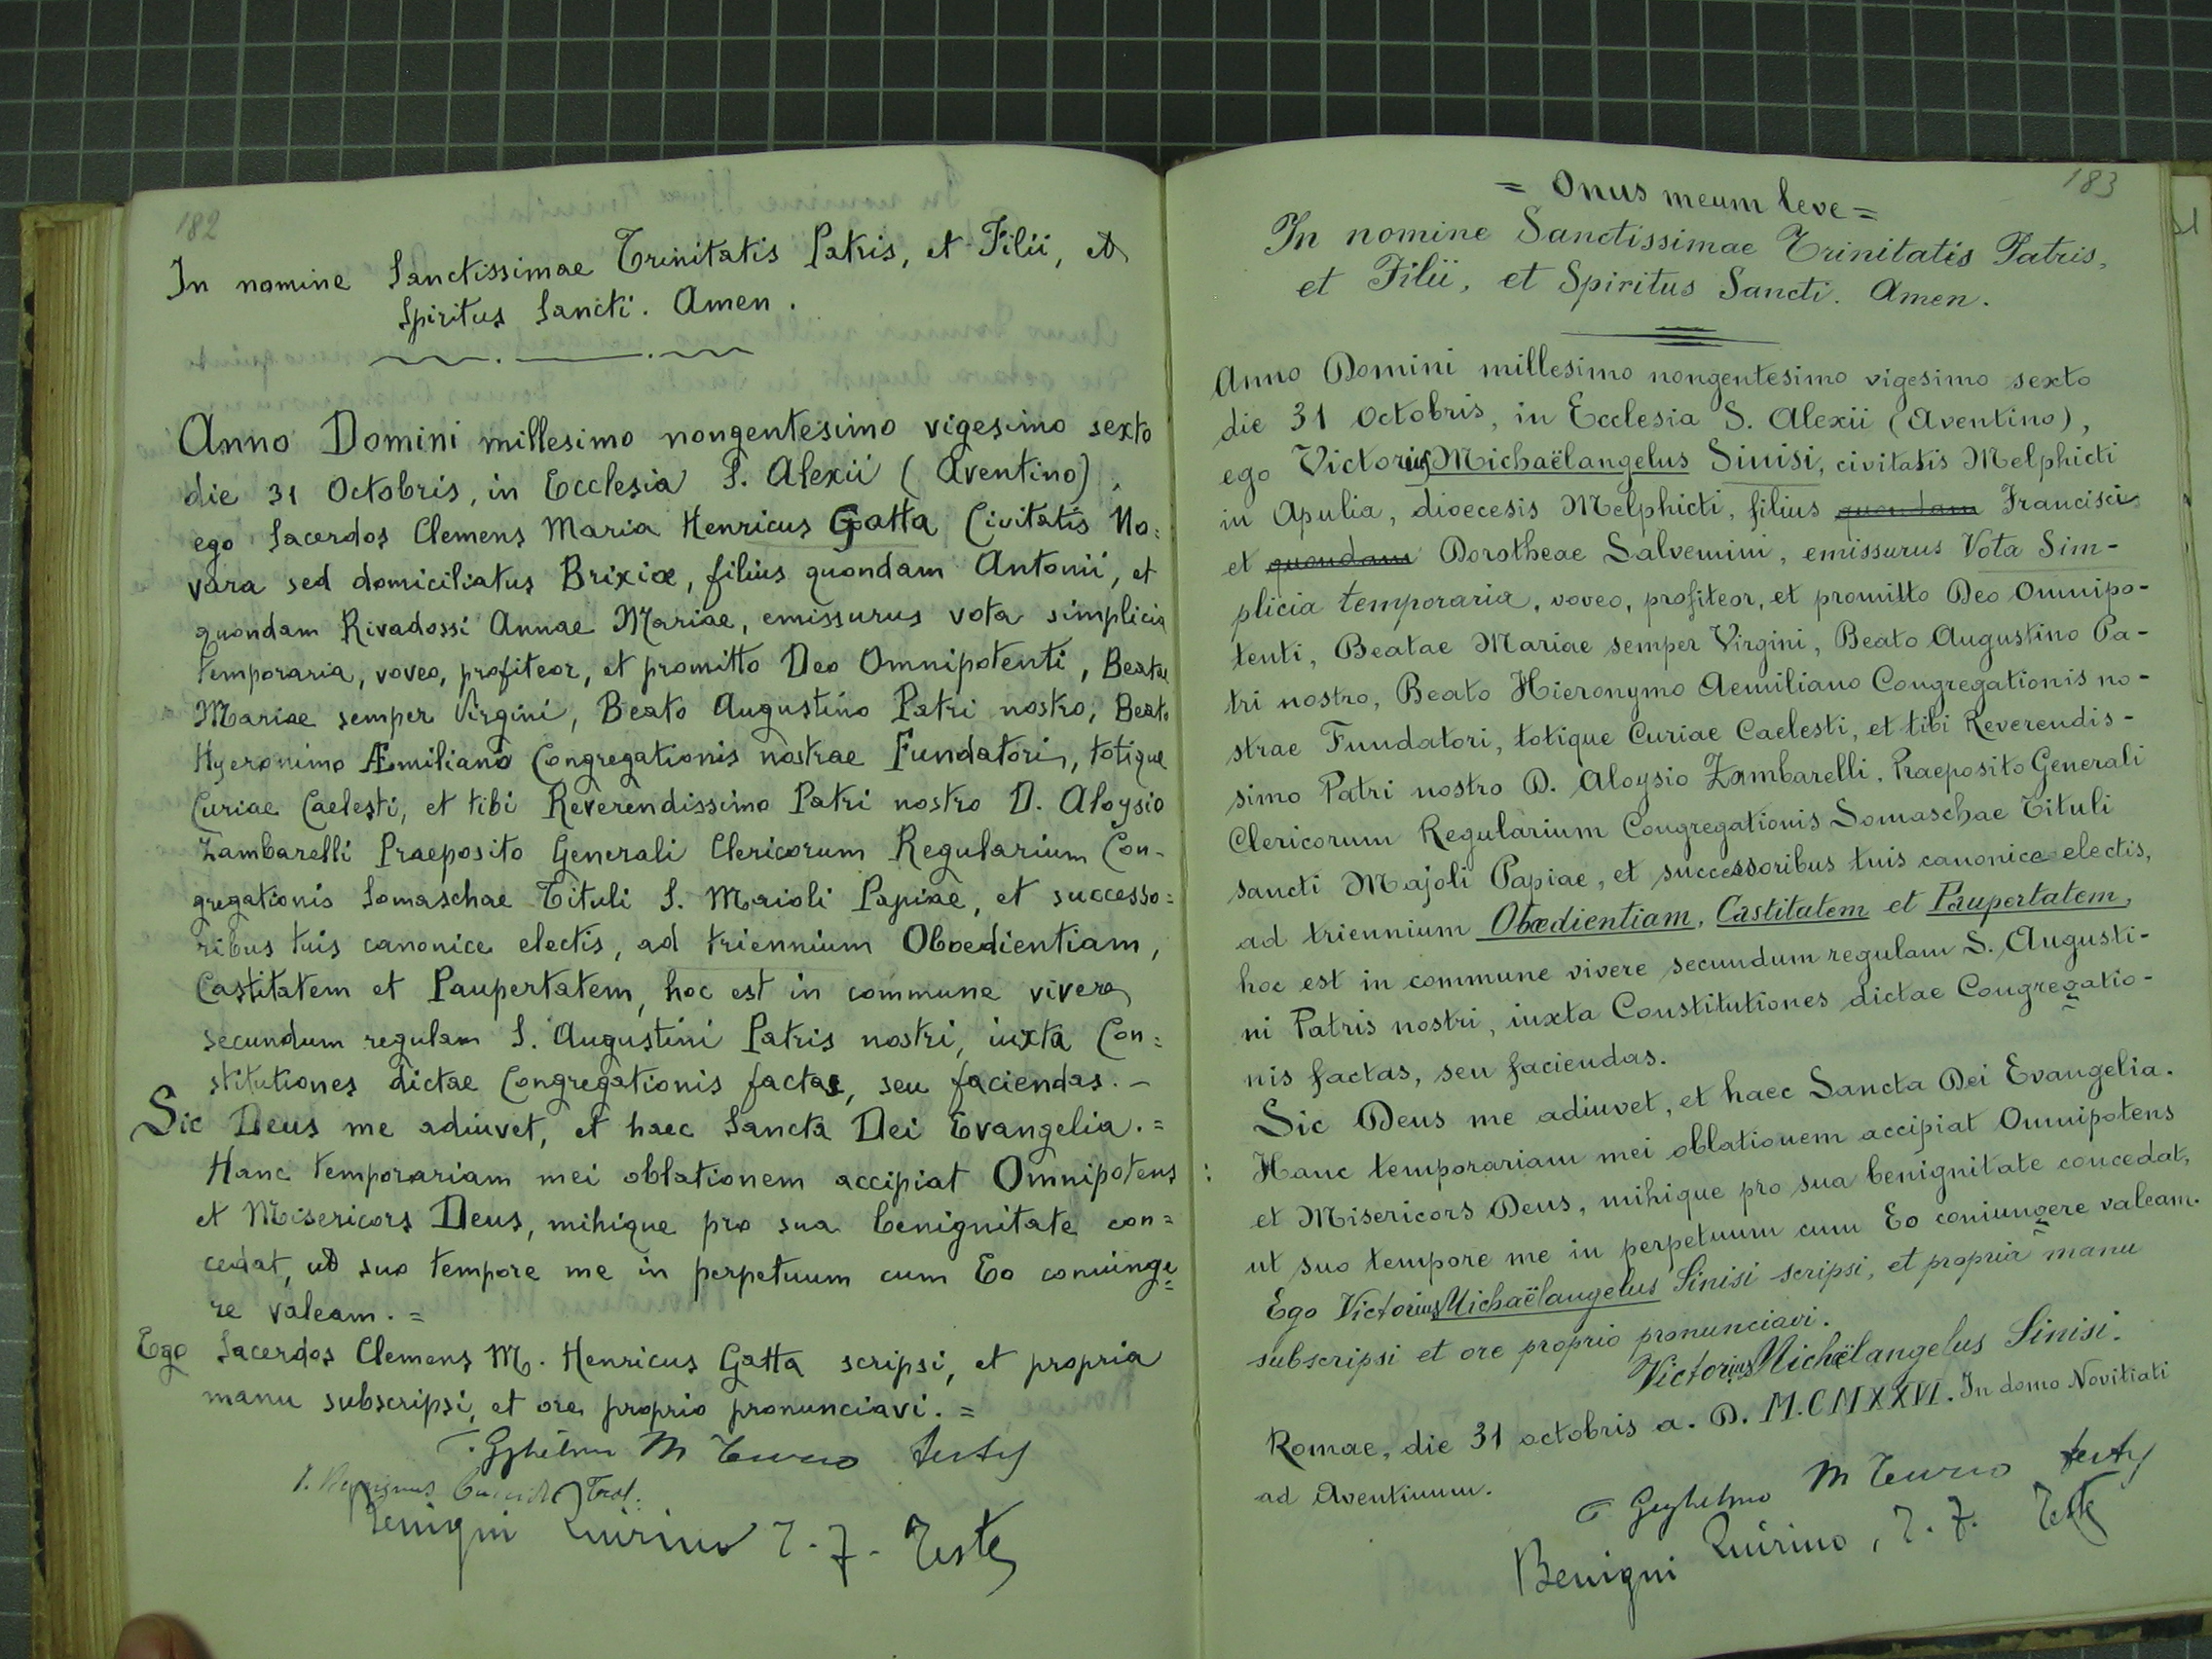 182
In nomine Sanctissimae Trinitatis Patris, et Filii, et
Spiritus Sancti. Amen.
Anno Domini millesimo nongentesimo vigesimo sexto
die 31 Octobris, in Ecclesia S. Alexii (Aventino),
ego Sacerdos Clemens Maria Henricus Gatta Civitatis No=
vara sed domiciliatus Brixiæ, filius quondam Antonii, et
quondam Rivadossi Annae Mariae, emissurus vota simplicia
temporaria, voveo, profiteor, et promitto Deo Omnipotenti, Beatae
Mariae semper Virgini, Beato Augustino Patri nostro, Beato
Hyeronimo Æmiliano Congregationis nostrae Fundatori, totique
Curiae Caelesti, et tibi Reverendissimo Patri nostro D. Aloysio
Zambarelli Praeposito Generali Clericorum Regularium Con-
gregationis Somaschae Tituli S. Maioli Papiae, et successo=
ribus tuis canonice electis, ad triennium Oboedientiam,
Castitatem et Paupertatem, hoc est in commune vivere
secundum regulam S. Augustini Patris nostri, iuxta Con=
stitutiones dictae Congregationis factas, seu faciendas. -
Sic Deus me adiuvet, et haec Sancta Dei Evangelia. =
Hanc temporariam mei oblationem accipiat Omnipotens
et Misericors Deus, mihique pro sua benignitate con=
cedat, ut suo tempore me in perpetuum cum Eo coniunge=
re valeam. =
Ego Sacerdos Clemens M. Henricus Gatta scripsi, et propria
manu subscripsi, et ore proprio pronunciavi. =
M Turco testis
Benigni Quirino T. F. Teste
183
= Onus meum leve =
In nomine Sanctissimae Trinitatis Patris,
et Filii, et Spiritus Sancti. Amen.
Anno Domini millesimo nongentesimo vigesimo sexto
die 31 Octobris, in Ecclesia S. Alexii (Aventino),
ego Victorius Michaëlangelus Sinisi, civitatis Melphicti
in Apulia, dioecesis Melphicti, filius quondam Francisci
et quondam Dorotheae Salvemini, emissurus Vota Sim-
plicia temporaria, voveo, profiteor, et promitto Deo Omnipo-
tenti, Beatae Mariae semper Virgini, Beato Augustino Pa-
tri nostro, Beato Hieronymo Aemiliano Congregationis no-
strae Fundatori, totique Curiae Caelesti, et tibi Reverendis-
simo Patri nostro D. Aloysio Zambarelli, Praeposito Generali
Clericorum Regularium Congregationis Somaschae Tituli
sancti Majoli Papiae, et successoribus tuis canonice electis,
ad triennium Obœdientiam, Castitatem et Paupertatem,
hoc est in commune vivere secundum regulam S. Augusti-
ni Patris nostri, iuxta Constitutiones dictae Congregatio-
nis factas, seu faciendas.
Sic Deus me adiuvet, et haec Sancta Dei Evangelia.
Hanc temporariam mei oblationem accipiat Omnipotens
et Misericors Deus, mihique pro sua benignitate concedat,
ut suo tempore me in perpetuum cum Eo coniungere valeam.
Ego Victorius Michaëlangelus Sinisi scripsi, et propria manu
subscripsi et ore proprio pronunciavi.
Victorius Michaëlangelus Sinisi.
Romae, die 31 octobris a. D. M.CMXXVI. In domo Novitiati
ad Aventinum.
M Turco testis
Benigni Quirino, T. F. Teste